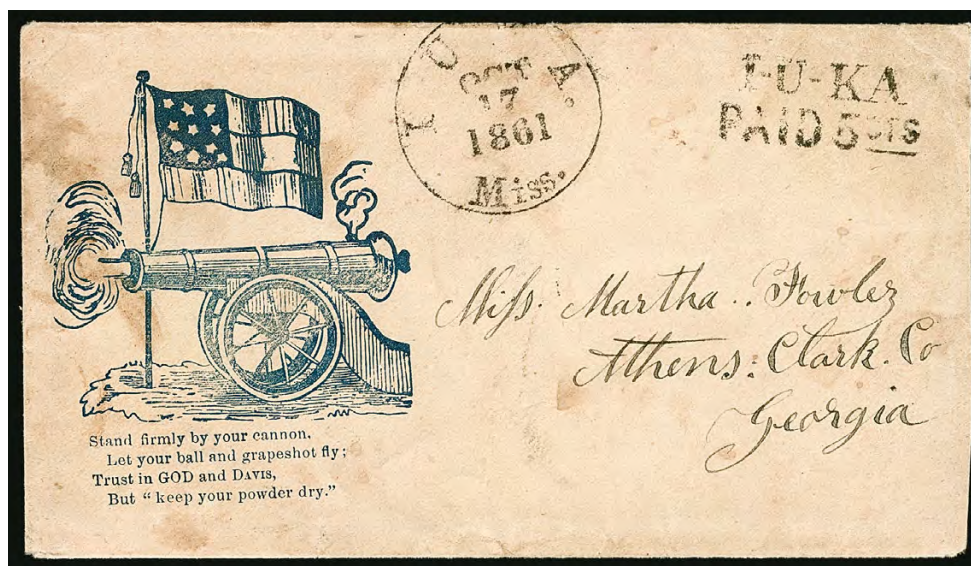 I U K A.
OCT
17
1861
Miss.
I-U-KA
PAID 5 CTS
Miss. Martha.. Fowler
Athens. Clark. Co
Georgia
Stand firmly by your cannon,
Let your ball and grapeshot fly;
Trust in GOD and DAVIS,
But "keep your powder dry."